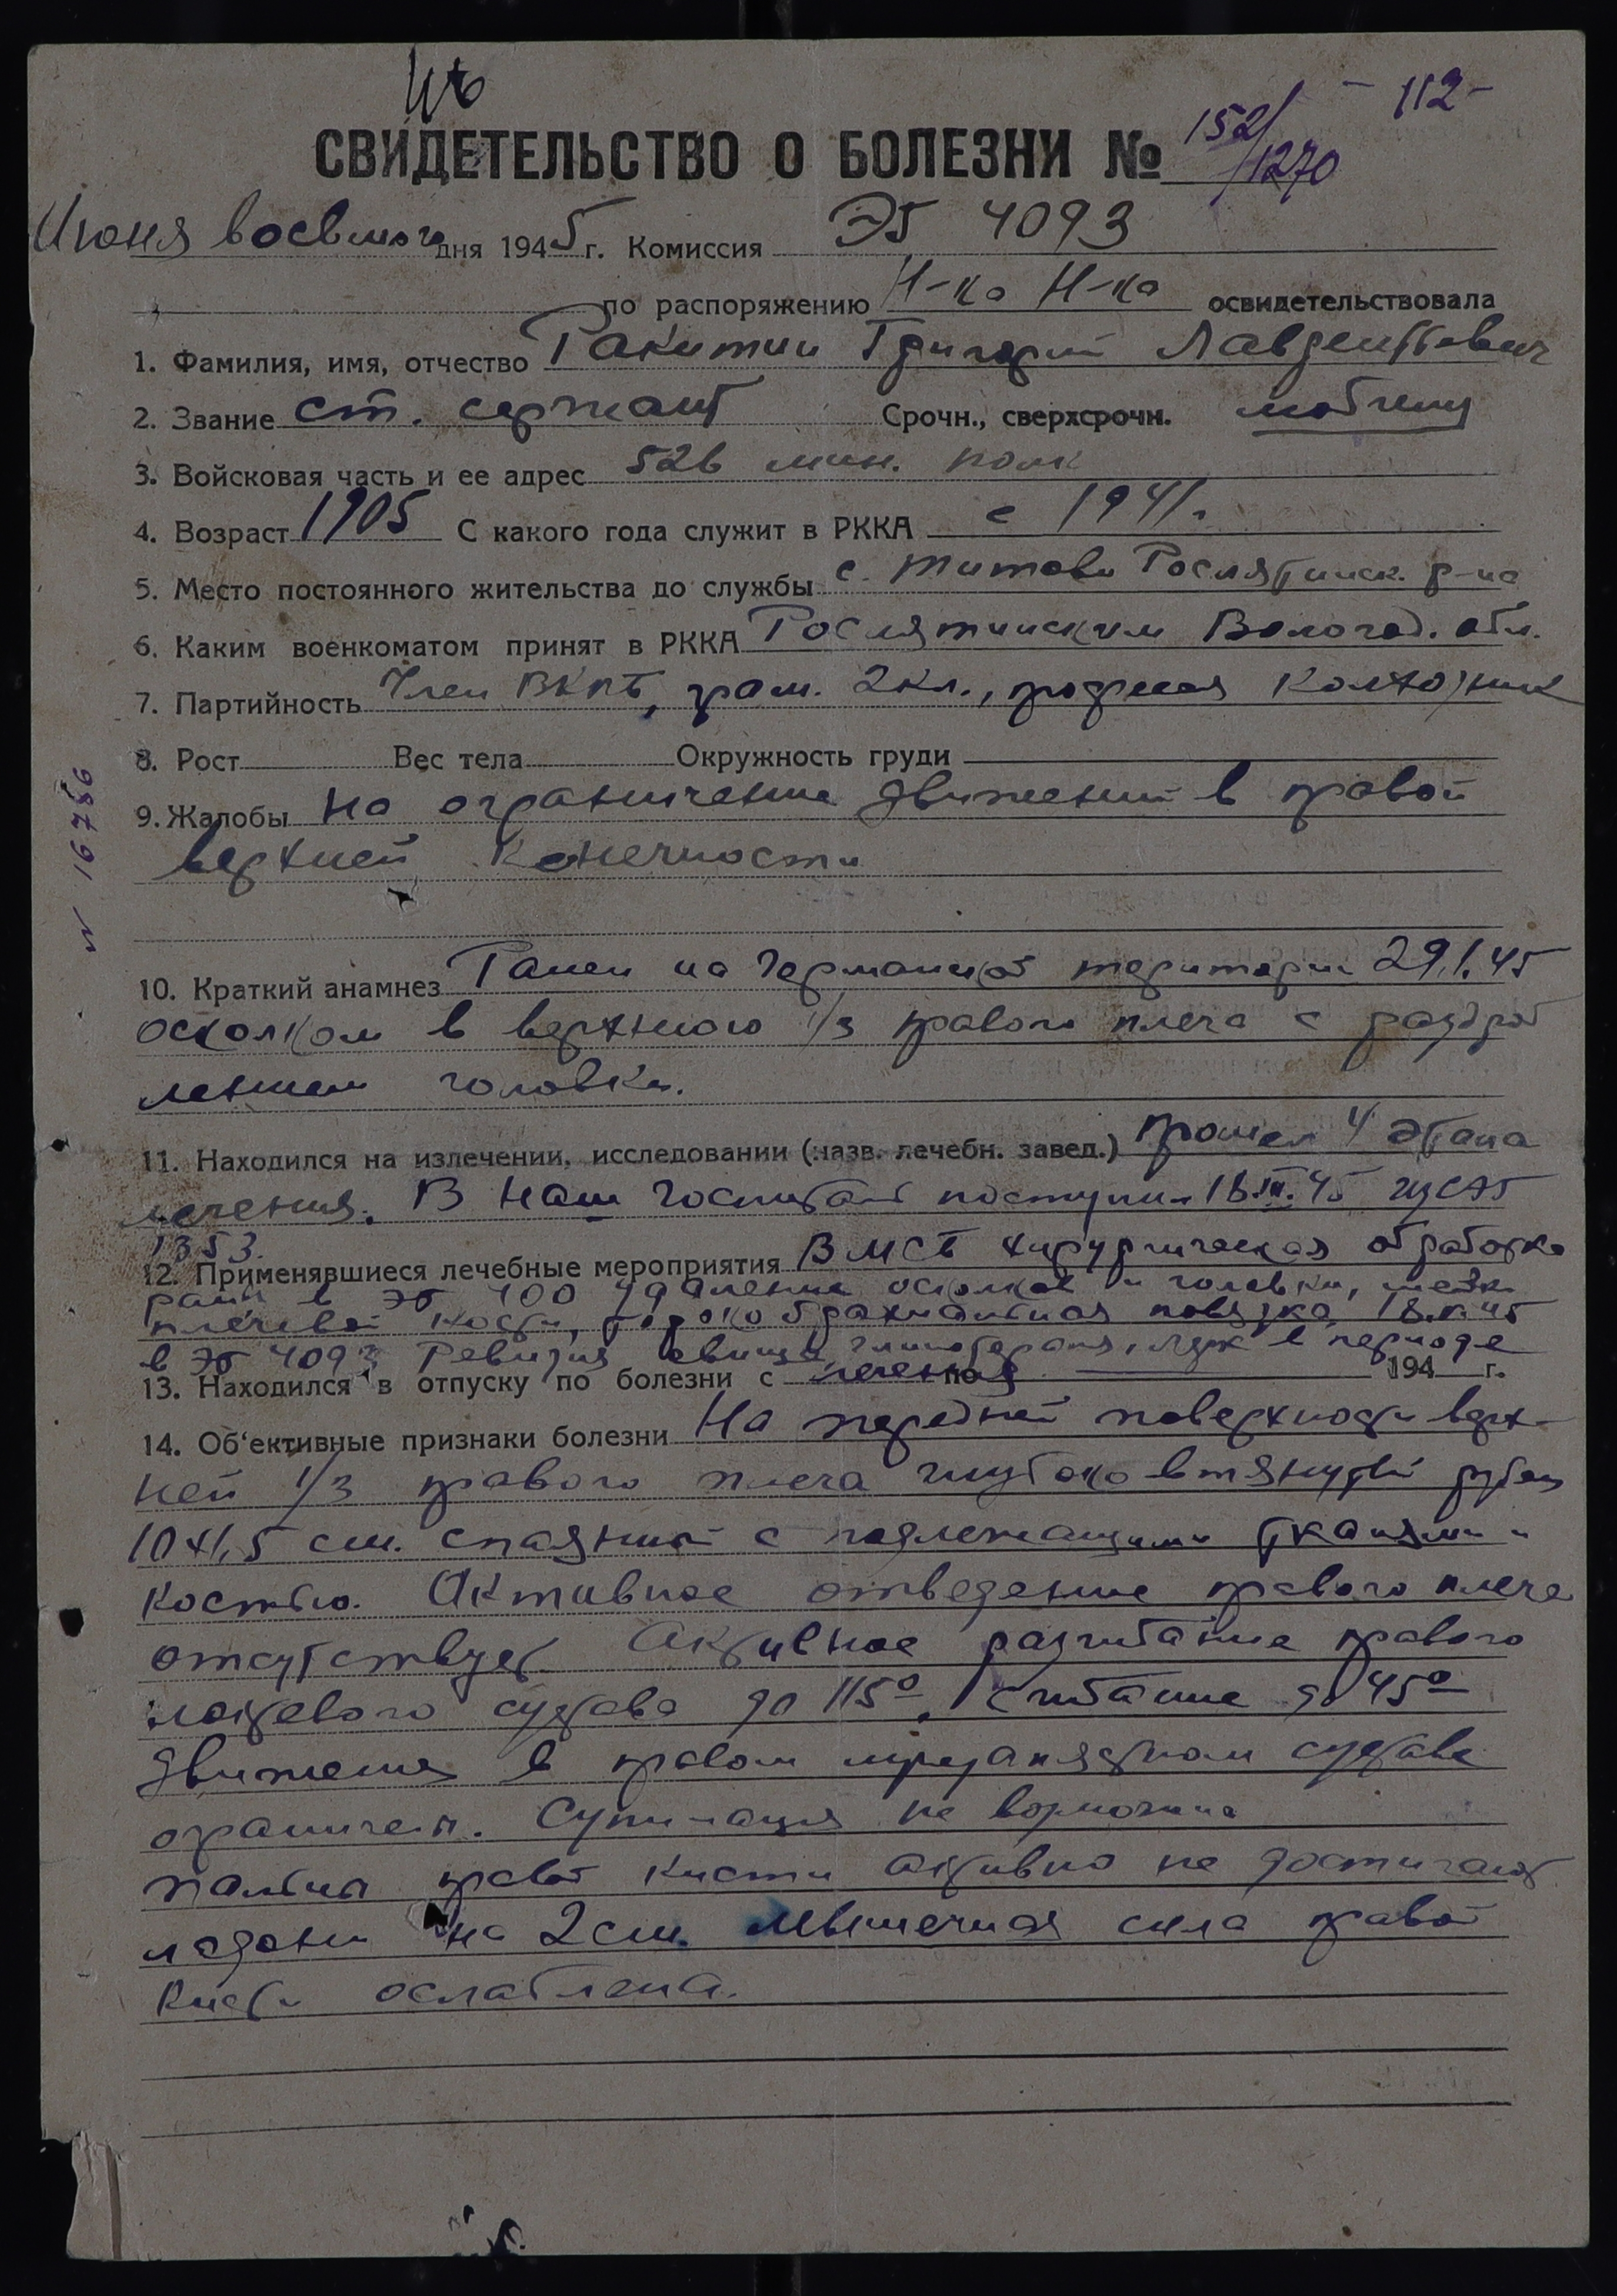 - 112-
СВИДЕТЕЛЬСТВО О БОЛЕЗНИ № 152/1270
Июня восьмого дня 1945 г. Комиссия ЭГ 4093
по распоряжению Н-ка Н-ка освидетельствовала
1. Фамилия, имя, отчество Ракитин Григорий Лаврентьевич
2. Звание ст. сержант Срочн., сверхсрочн.
3. Войсковая часть и ее адрес 526 мин. полк
4. Возраст 1905 С какого года служит в РККА с 1941г.
5. Место постоянного жительства до службы с. Титово Рослятинск. р-на
6. Каким военкоматом принят в РККА Рослятинским Вологод. обл.
7. Партийность Член ВКПб, грам. 2 кл., професия колхозник
8. Рост Вес тела Окружность груди
9. Жалобы На ограничение движений в правой
верхней конечности
№ 16786
10. Краткий анамнез Ранен на Германской територии 29.1.45
осколком в верхнюю 1/3 правого плеча с раздроб
лением головки.
11. Находился на излечении, исследовании (назв. лечебн. завед.) прошел 4 этапа
лечения. В наш госпиталь поступил 18.III.45 из СЭГ
1353.
12. Применявшиеся лечебные мероприятия В МСБ хирургическая обработка
раны в ЭГ 100 удаление осколков и головки, шейки
плечевой кости, торокобрахиальная повязка
в ЭГ 4093 Ревизия свища, гипсотерапия, ЛФК в периоде
13. Находился в отпуску по болезни с лечения по 194 г.
14. Об'ективные признаки болезни На передней поверхности верх-
ней 1/3 правого плеча глубоко втянутый рубец
10x1,5 см. спаянный с подлежащими тканями и
костью. Активное отведение правого плеча
отсутствует Активное разгибание правого
локтевого сустава до 115°, сгибание до 45°
движения в правом лучезапястном суставе
ограничен. Супинация не возможна
пальцы правой кисти активно не достигают
ладони на 2 см. Мышечная сила правой
кисти ослаблена.